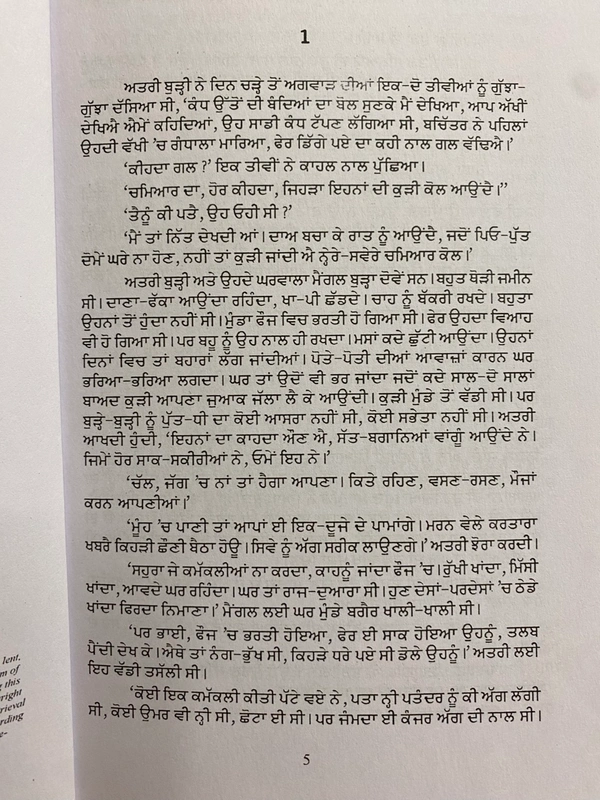 1
ਅਤਰੀ ਬੁੜ੍ਹੀ ਨੇ ਦਿਨ ਚੜ੍ਹੇ ਤੋਂ ਅਗਵਾੜ ਦੀਆਂ ਇਕ-ਦੋ ਤੀਵੀਆਂ ਨੂੰ ਗੁੱਝਾ-
ਗੁੱਝਾ ਦੱਸਿਆ ਸੀ, ‘ਕੰਧ ਉੱਤੋਂ ਦੀ ਬੰਦਿਆਂ ਦਾ ਬੋਲ ਸੁਣਕੇ ਮੈਂ ਦੇਖਿਆ, ਆਪ ਅੱਖੀਂ
ਦੇਖਿਐ ਐਮੇਂ ਕਹਿਦਿਆਂ, ਉਹ ਸਾਡੀ ਕੰਧ ਟੱਪਣ ਲੱਗਿਆ ਸੀ, ਬਚਿੱਤਰ ਨੇ ਪਹਿਲਾਂ
ਉਹਦੀ ਵੱਖੀ ’ਚ ਗੰਧਾਲਾ ਮਾਰਿਆ, ਫੇਰ ਡਿੱਗੇ ਪਏ ਦਾ ਕਹੀ ਨਾਲ ਗਲ ਵੱਢਿਐ।’
‘ਕੀਹਦਾ ਗਲ ?’ ਇਕ ਤੀਵੀਂ ਨੇ ਕਾਹਲ ਨਾਲ ਪੁੱਛਿਆ।
‘ਚਮਿਆਰ ਦਾ, ਹੋਰ ਕੀਹਦਾ, ਜਿਹੜਾ ਇਹਨਾਂ ਦੀ ਕੁੜੀ ਕੋਲ ਆਉਂਦੈ।”
‘ਤੈਨੂੰ ਕੀ ਪਤੈ, ਉਹ ਓਹੀ ਸੀ ?’
‘ਮੈਂ ਤਾਂ ਨਿੱਤ ਦੇਖਦੀ ਆਂ। ਦਾਅ ਬਚਾ ਕੇ ਰਾਤ ਨੂੰ ਆਉਂਦੈ, ਜਦੋਂ ਪਿਓ-ਪੁੱਤ
ਦੋਮੇਂ ਘਰੇ ਨਾ ਹੋਣ, ਨਹੀਂ ਤਾਂ ਕੁੜੀ ਜਾਂਦੀ ਐ ਨ੍ਹੇਰੇ-ਸਵੇਰੇ ਚਮਿਆਰ ਕੋਲ।’
ਅਤਰੀ ਬੁੜ੍ਹੀ ਅਤੇ ਉਹਦੇ ਘਰਵਾਲਾ ਮੈਂਗਲ ਬੁੜ੍ਹਾ ਦੋਵੇਂ ਸਨ। ਬਹੁਤ ਥੋੜੀ ਜਮੀਨ
ਸੀ। ਦਾਣਾ-ਫੱਕਾ ਆਉਂਦਾ ਰਹਿੰਦਾ, ਖਾ-ਪੀ ਛੱਡਦੇ। ਚਾਹ ਨੂੰ ਬੱਕਰੀ ਰਖਦੇ। ਬਹੁਤਾ
ਉਹਨਾਂ ਤੋਂ ਹੁੰਦਾ ਨਹੀਂ ਸੀ। ਮੁੰਡਾ ਫੌਜ ਵਿਚ ਭਰਤੀ ਹੋ ਗਿਆ ਸੀ। ਫੇਰ ਉਹਦਾ ਵਿਆਹ
ਵੀ ਹੋ ਗਿਆ ਸੀ। ਪਰ ਬਹੂ ਨੂੰ ਉਹ ਨਾਲ ਹੀ ਰਖਦਾ। ਮਸਾਂ ਕਦੇ ਛੁੱਟੀ ਆਉਂਦਾ। ਉਹਨਾਂ
ਦਿਨਾਂ ਵਿਚ ਤਾਂ ਬਹਾਰਾਂ ਲੱਗ ਜਾਂਦੀਆਂ। ਪੋਤੇ-ਪੋਤੀ ਦੀਆਂ ਆਵਾਜ਼ਾਂ ਕਾਰਨ ਘਰ
ਭਰਿਆ-ਭਰਿਆ ਲਗਦਾ। ਘਰ ਤਾਂ ਉਦੋਂ ਵੀ ਭਰ ਜਾਂਦਾ ਜਦੋਂ ਕਦੇ ਸਾਲ-ਦੋ ਸਾਲਾਂ
ਬਾਅਦ ਕੁੜੀ ਆਪਣਾ ਜੁਆਕ ਜੱਲਾ ਲੈ ਕੇ ਆਉਂਦੀ। ਕੁੜੀ ਮੁੰਡੇ ਤੋਂ ਵੱਡੀ ਸੀ। ਪਰ
ਬੁੜ੍ਹੇ-ਬੁੜ੍ਹੀ ਨੂੰ ਪੁੱਤ-ਧੀ ਦਾ ਕੋਈ ਆਸਰਾ ਨਹੀਂ ਸੀ, ਕੋਈ ਸਭੇਤਾ ਨਹੀਂ ਸੀ। ਅਤਰੀ
ਆਖਦੀ ਹੁੰਦੀ, ‘ਇਹਨਾਂ ਦਾ ਕਾਹਦਾ ਔਣ ਐ, ਸੱਤ-ਬਗਾਨਿਆਂ ਵਾਂਗੂੰ ਆਉਂਦੇ ਨੇ।
ਜਿਮੇਂ ਹੋਰ ਸਾਕ-ਸਕੀਰੀਆਂ ਨੇ, ਓਮੇਂ ਇਹ ਨੇ।’
‘ਚੱਲ, ਜੱਗ ’ਚ ਨਾਂ ਤਾਂ ਹੈਗਾ ਆਪਣਾ। ਕਿਤੇ ਰਹਿਣ, ਵਸਣ-ਰਸਣ, ਮੌਜਾਂ
ਕਰਨ ਆਪਣੀਆਂ।’
‘ਮੂੰਹ ’ਚ ਪਾਣੀ ਤਾਂ ਆਪਾਂ ਈ ਇਕ-ਦੂਜੇ ਦੇ ਪਾਮਾਂਗੇ। ਮਰਨ ਵੇਲੇ ਕਰਤਾਰਾ
ਖਬਰੈ ਕਿਹੜੀ ਛੌਣੀ ਬੈਠਾ ਹੋਊ। ਸਿਵੇ ਨੂੰ ਅੱਗ ਸਰੀਕ ਲਾਉਣਗੇ।’ ਅਤਰੀ ਝੋਰਾ ਕਰਦੀ।
‘ਸਹੁਰਾ ਜੇ ਕਮੱਕਲੀਆਂ ਨਾ ਕਰਦਾ, ਕਾਹਨੂੰ ਜਾਂਦਾ ਫੌਜ ’ਚ। ਰੁੱਖੀ ਖਾਂਦਾ, ਮਿੱਸੀ
ਖਾਂਦਾ, ਆਵਦੇ ਘਰ ਰਹਿੰਦਾ। ਘਰ ਤਾਂ ਰਾਜ-ਦੁਆਰਾ ਸੀ। ਹੁਣ ਦੇਸਾਂ-ਪਰਦੇਸਾਂ ’ਚ ਠੇਡੇ
ਖਾਂਦਾ ਫਿਰਦਾ ਨਿਮਾਣਾ।’ ਮੈਂਗਲ ਲਈ ਘਰ ਮੁੰਡੇ ਬਗੈਰ ਖਾਲੀ-ਖਾਲੀ ਸੀ।
‘ਪਰ ਭਾਈ, ਫੌਜ ’ਚ ਭਰਤੀ ਹੋਇਆ, ਫੇਰ ਈ ਸਾਕ ਹੋਇਆ ਉਹਨੂੰ, ਤਲਬ
ਪੈਂਦੀ ਦੇਖ ਕੇ। ਐਥੇ ਤਾਂ ਨੰਗ-ਭੁੱਖ ਸੀ, ਕਿਹੜੇ ਧਰੇ ਪਏ ਸੀ ਡੋਲੇ ਉਹਨੂੰ।’ ਅਤਰੀ ਲਈ
ਇਹ ਵੱਡੀ ਤਸੱਲੀ ਸੀ।
‘ਕੋਈ ਇਕ ਕਮੱਕਲੀ ਕੀਤੀ ਪੱਟੇ ਵਏ ਨੇ, ਪਤਾ ਨ੍ਹੀ ਪਤੰਦਰ ਨੂੰ ਕੀ ਅੱਗ ਲੱਗੀ
ਸੀ, ਕੋਈ ਉਮਰ ਵੀ ਨ੍ਹੀ ਸੀ, ਛੋਟਾ ਈ ਸੀ। ਪਰ ਜੰਮਦਾ ਈ ਕੰਜਰ ਅੱਗ ਦੀ ਨਾਲ ਸੀ।
5
lent,
m of
this
right
rieval
rding
e-